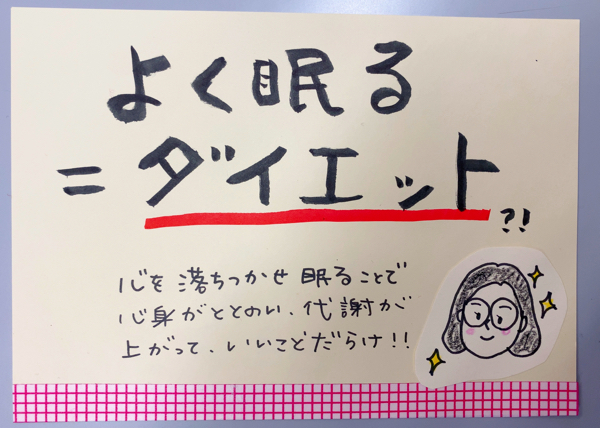 よく眠る
=ダイエット?!
心を落ちつかせ眠ることで
心身がととのい、代謝が
上がって、いいことだらけ!!